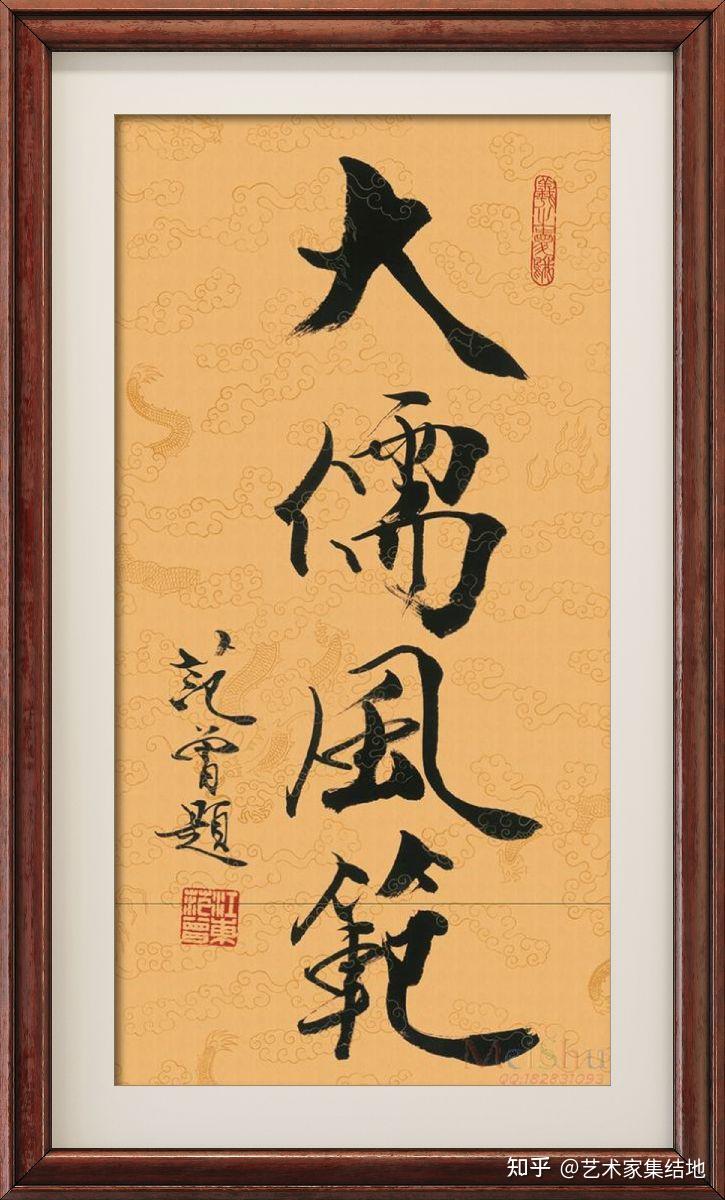 羲之愛鵝
大儒風範
范曾題
江東范曾
MeiShu
QQ:182831093
知乎 @艺术家集结地